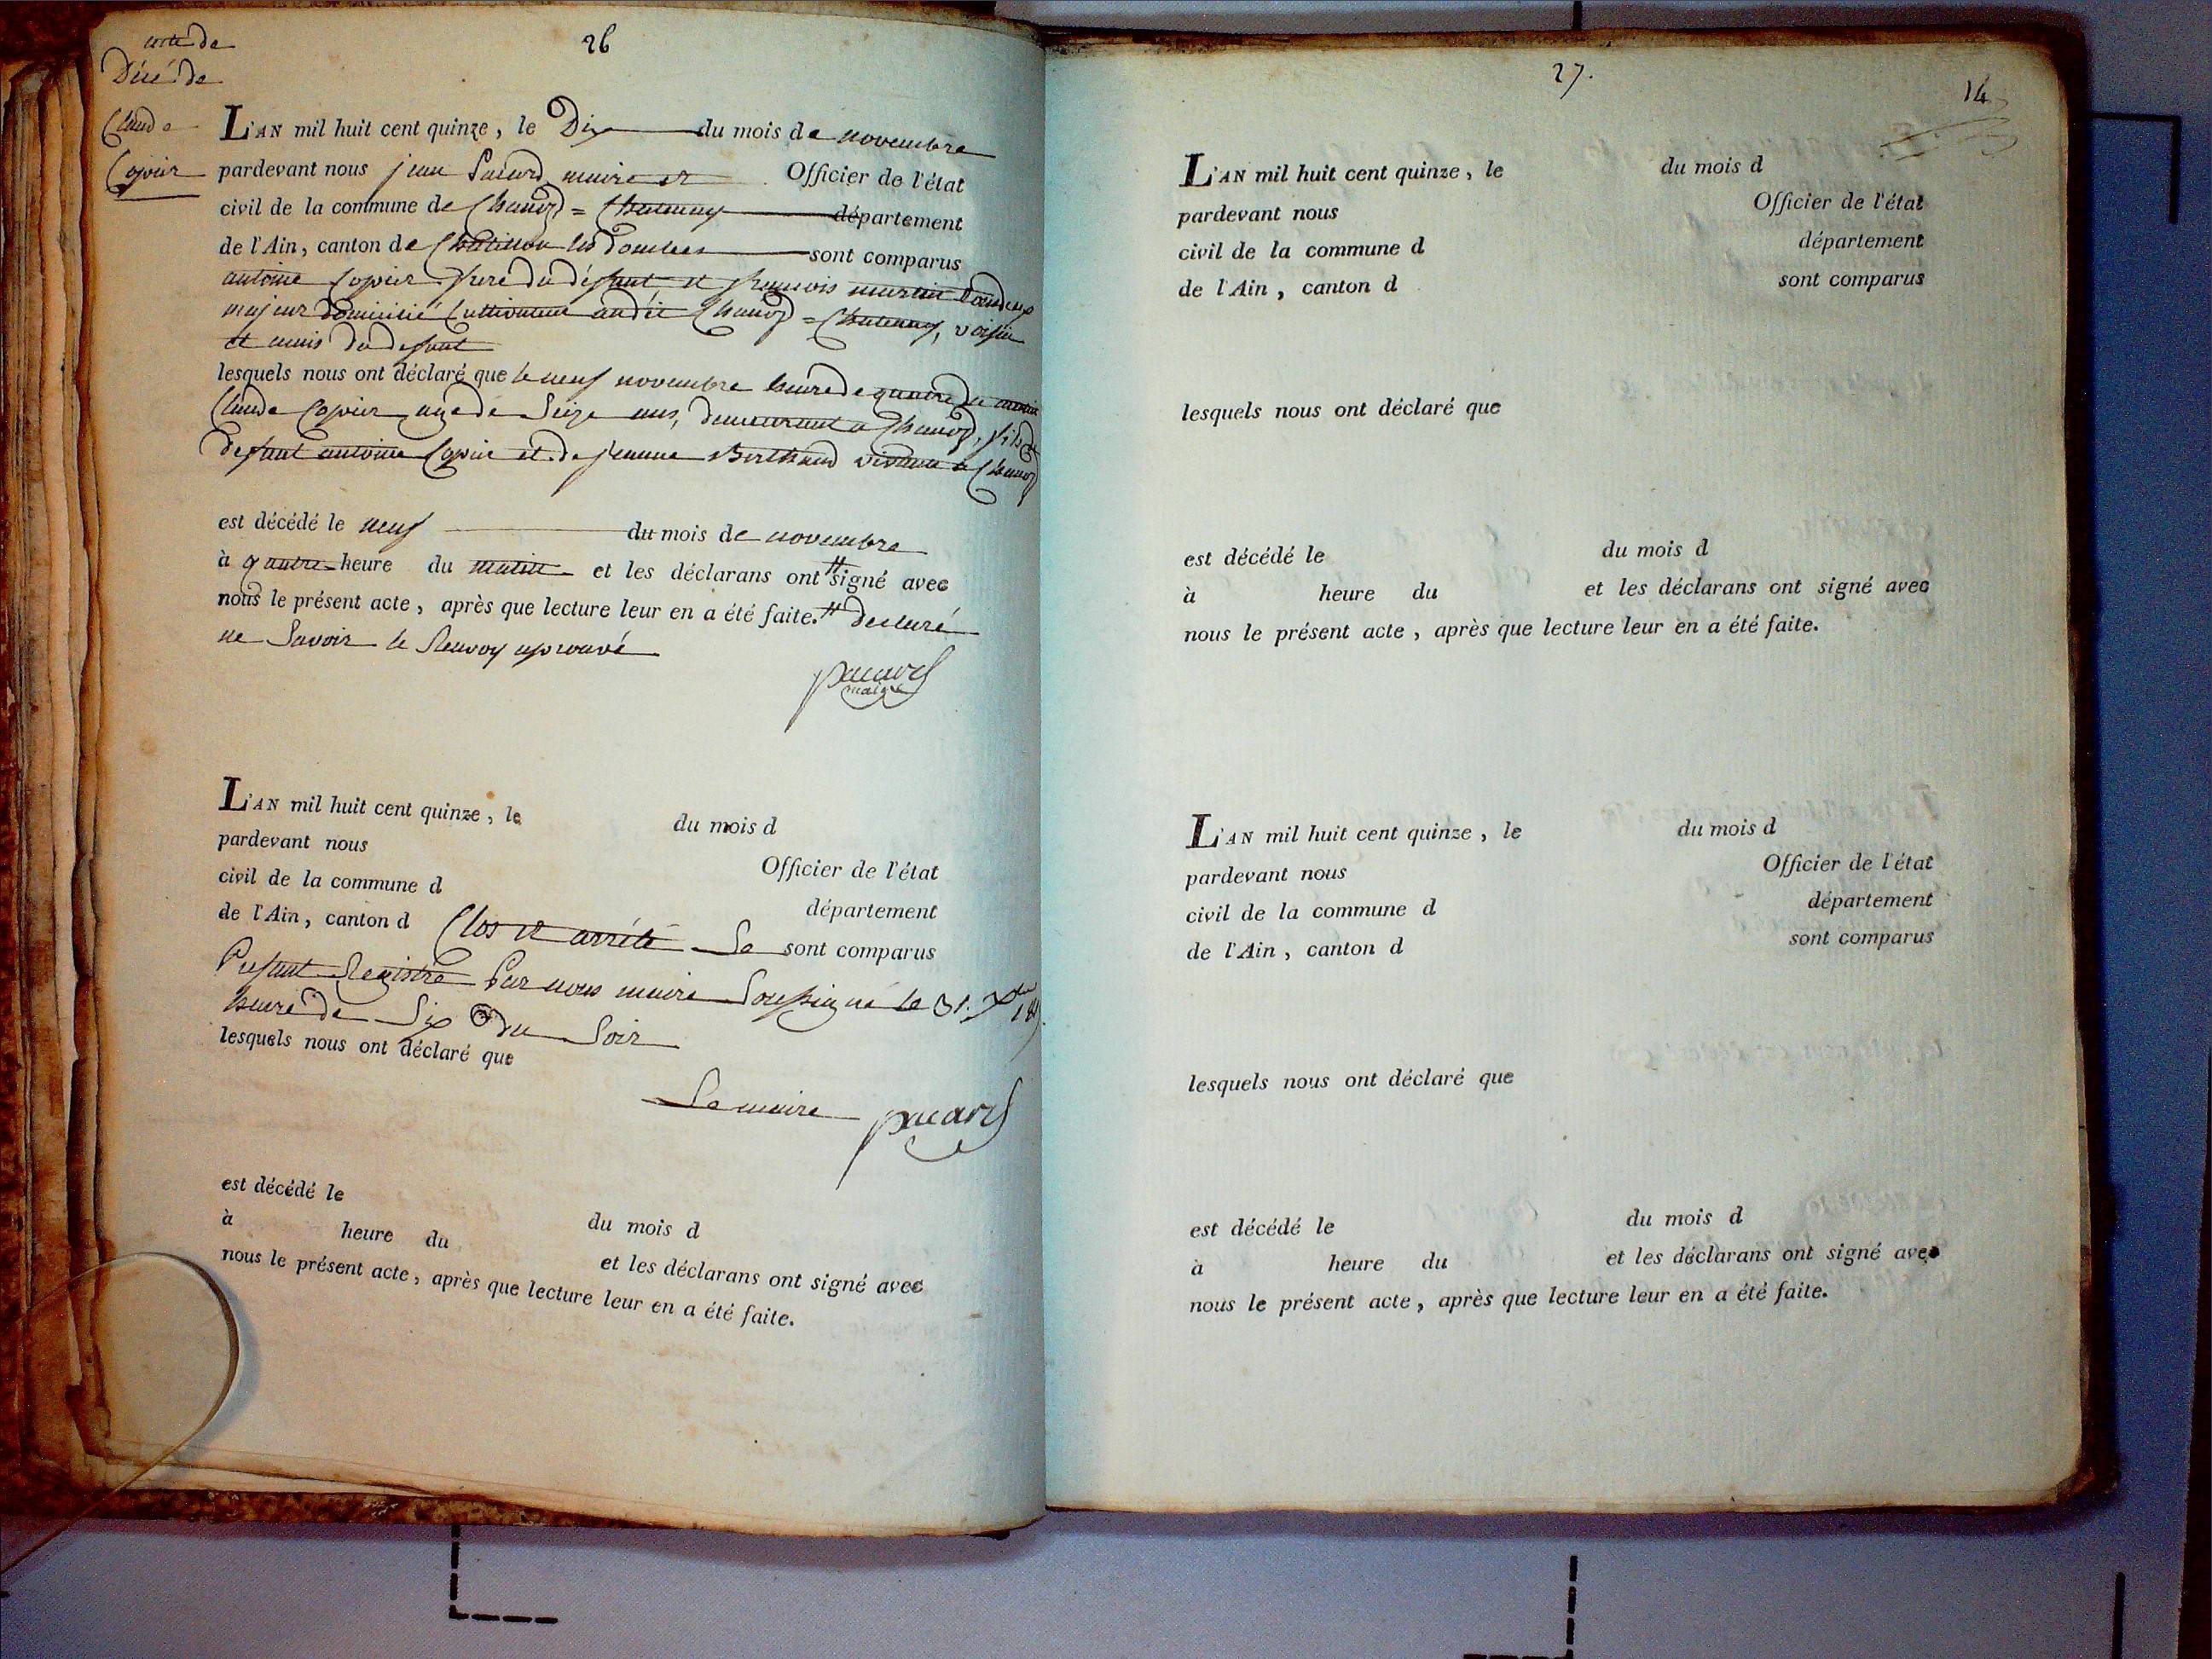 26
acte de
Décé de
Claude
Copier
L'AN mil huit cent quinze, le Dix du mois de novembre
pardevant nous jean Pacard maire et Officier de l'état
civil de la commune de Chanoz=Chatenay département
de l'Ain, canton de Chatillon les Dombes sont comparus
antoine Copier frere du défunt et francois martin tous deux
majeur domicilié Cultivateur audit Chanoz=Chatenay, voisin
et amis du defunt
lesquels nous ont déclaré que le neuf novembre heure de quatre du matin
Claude Copier age de Seize ans, demeurant a Chanoz, fils de
defunt antoine Copier et de jeanne Berthaud vivant a Chanoz
est décédé le neuf du mois de novembre
à quatre heure du matin et les déclarans ont # signé avec
nous le présent acte, après que lecture leur en a été faite. # declaré
ne Savoir le Renvoy aprouvé
pacard
maire
L'AN mil huit cent quinze, le du mois d
pardevant nous Officier de l'état
civil de la commune d département
de l'Ain, canton d Clos et arrété Le sont comparus
Présent Registre Par nous maire Soussigné le 31. Xbre
heure de Six du Soir
lesquels nous ont déclaré que
Le maire pacard
est décédé le du mois d
à heure du et les déclarans ont signé avec
nous le présent acte, après que lecture leur en a été faite.
27.
14
L'AN mil huit cent quinze, le du mois d
pardevant nous Officier de l'état
civil de la commune d département
de l'Ain, canton d sont comparus
lesquels nous ont déclaré que
est décédé le du mois d
à heure du et les déclarans ont signé avec
nous le présent acte, après que lecture leur en a été faite.
L'AN mil huit cent quinze, le du mois d
pardevant nous Officier de l'état
civil de la commune d département
de l'Ain, canton d sont comparus
lesquels nous ont déclaré que
est décédé le du mois d
à heure du et les déclarans ont signé avec
nous le présent acte, après que lecture leur en a été faite.